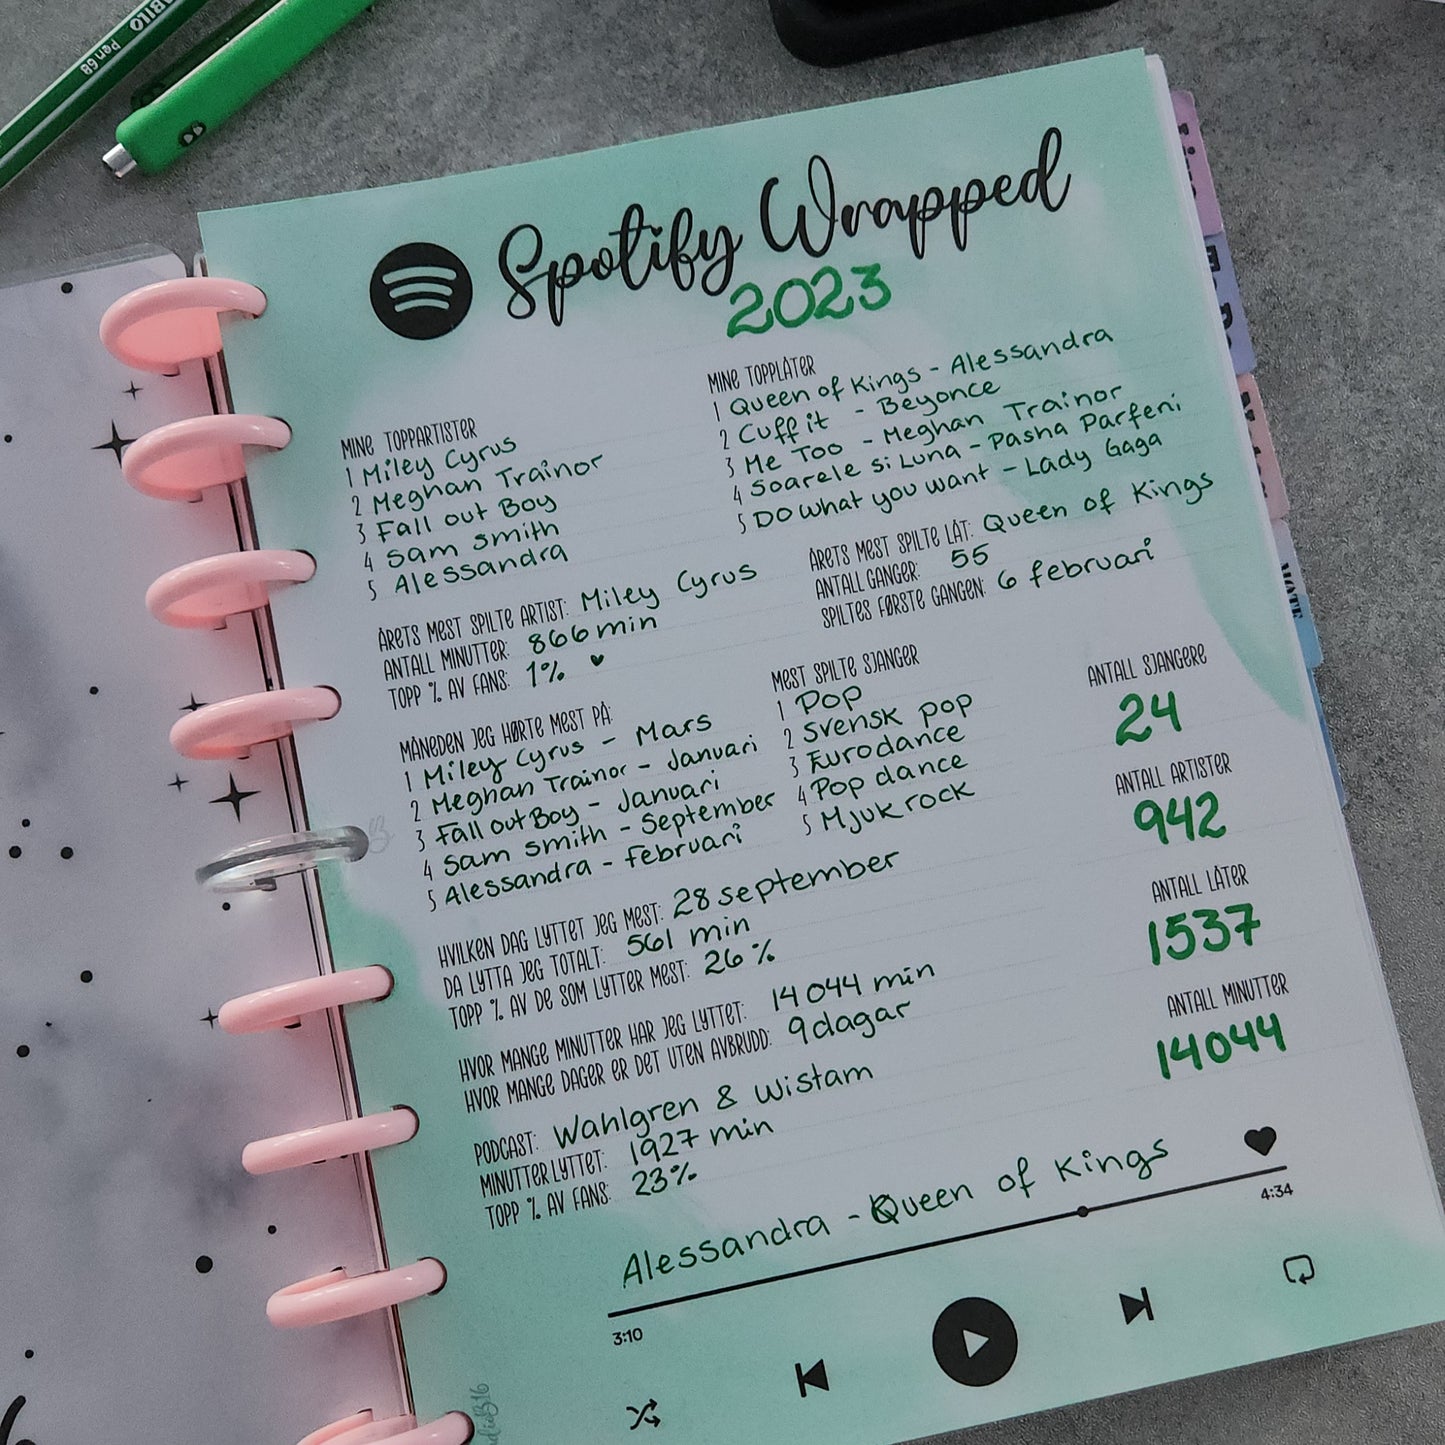 Pen 68
Spotify Wrapped
2023
MINE TOPPARTISTER
1 Miley Cyrus
2 Meghan Trainor
3 Fall out Boy
4 Sam Smith
5 Alessandra
MINE TOPPLÅTER
1 Queen of Kings - Alessandra
2 Cuff it - Beyonce
3 Me Too - Meghan Trainor
4 Soarele si Luna - Pasha Parfeni
5 Do what you want - Lady Gaga
ÅRETS MEST SPILTE ARTIST: Miley Cyrus
ANTALL MINUTTER: 866 min
TOPP % AV FANS: 1% ♥
ÅRETS MEST SPILTE LÅT: Queen of Kings
ANTALL GANGER: 55
SPILTES FØRSTE GANGEN: 6 februari
MÅNEDEN JEG HØRTE MEST PÅ:
1 Miley Cyrus - Mars
2 Meghan Trainor - Januari
3 Fall out Boy - Januari
4 Sam Smith - September
5 Alessandra - Februari
MEST SPILTE SJANGER
1 Pop
2 Svensk pop
3 Eurodance
4 Pop dance
5 Mjuk rock
ANTALL SJANGERE
24
ANTALL ARTISTER
942
ANTALL LÅTER
1537
ANTALL MINUTTER
14044
HVILKEN DAG LYTTET JEG MEST: 28 september
DA LYTTA JEG TOTALT: 561 min
TOPP % AV DE SOM LYTTER MEST: 26%
HVOR MANGE MINUTTER HAR JEG LYTTET: 14 044 min
HVOR MANGE DAGER ER DET UTEN AVBRUDD: 9 dagar
PODCAST: Wahlgren & Wistam
MINUTTER LYTTET: 1927 min
TOPP % AV FANS: 23%
Alessandra - Queen of Kings
3:10
4:34